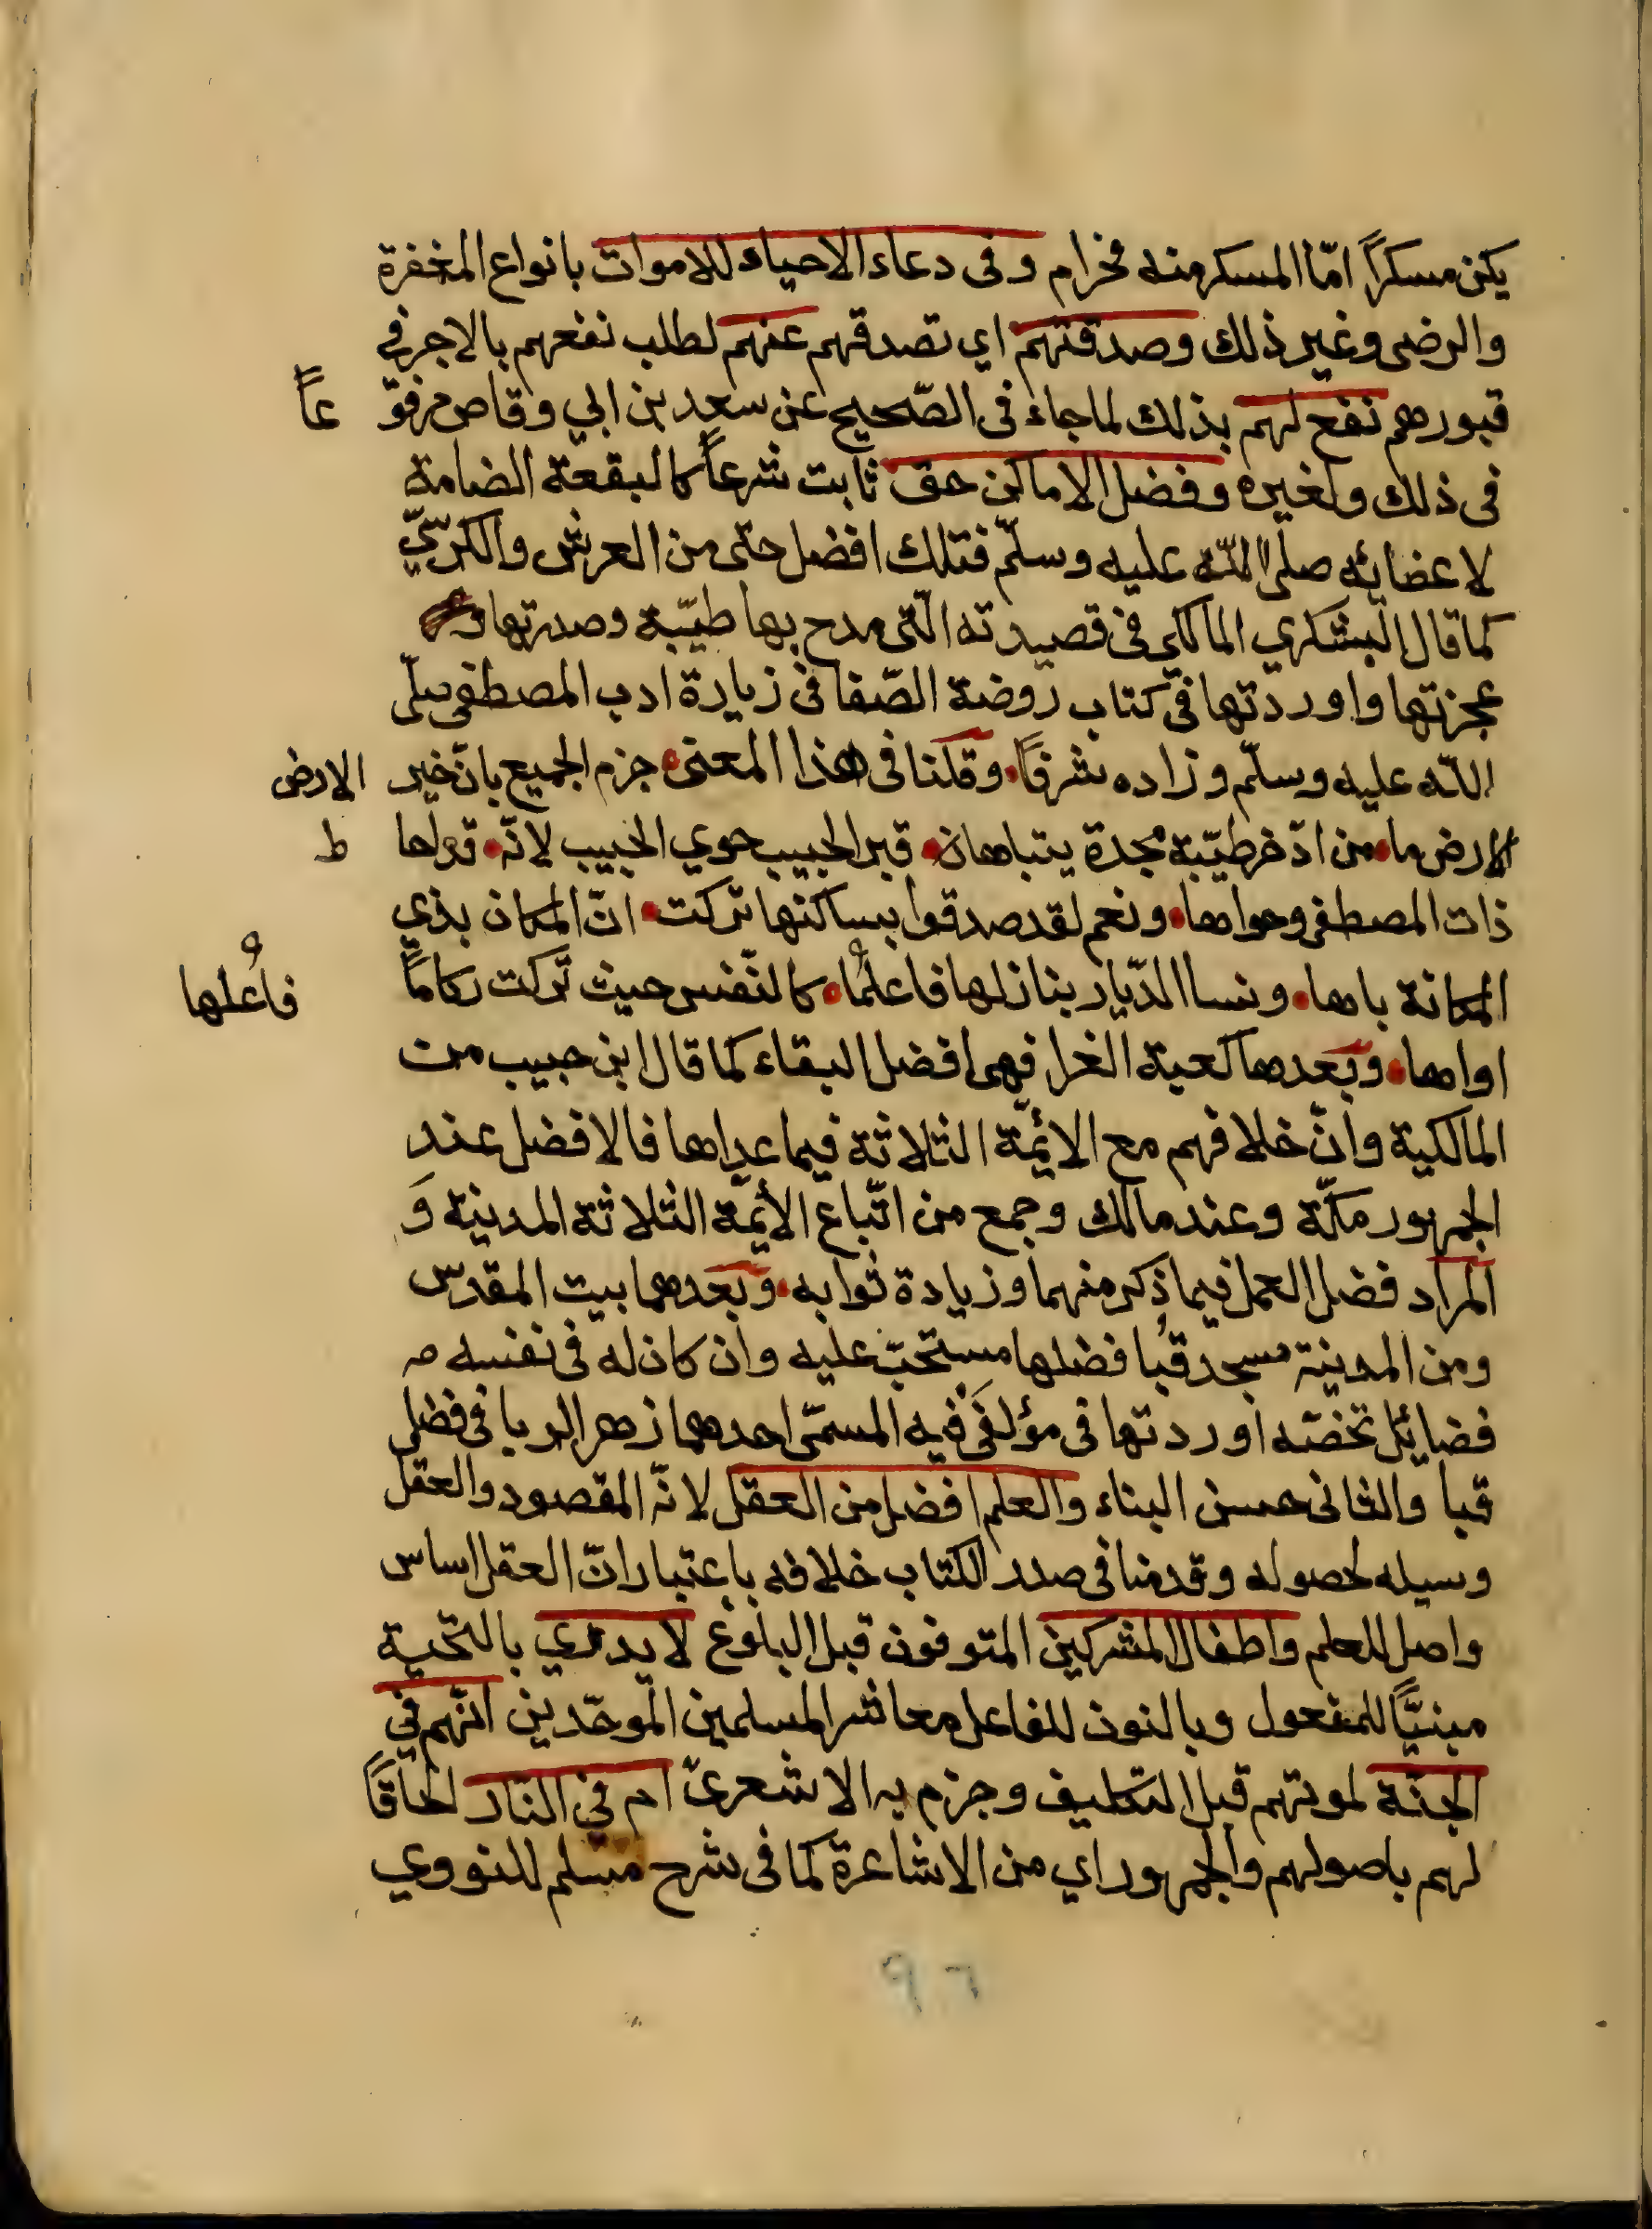 يكن مسكراً امّا المسكر منه فحرام وفى دعاء الاحياء للاموات بانواع المغفرة
والرضى وغير ذلك وصدقتهم اي تصدقهم عنهم لطلب نفعهم بالاجر في
قبورهم نفع لهم بذلك لما جاء فى الصّحيح عن سعد بن ابي وقاص مرفو عاً
فى ذلك ولغيره وفضل الاماكن حق ثابت شرعاً كالبقعة الضامة
لاعضائه صلى اللّه عليه وسلّم فتلك افضل حتّى من العرش والكرسّي
كما قال البشكري المالكي فى قصيدته الّتى مدح بها طيّبة وصدرتها و
عجزتها واوردتها فى كتاب روضة الصّفا فى زيارة ادب المصطفى صلّى
اللّه عليه وسلّم وزاده شرفاً وقلنا فى هذا المعنى جزم الجميع بانّ خير الارض
الارض ما من اذخر طيّبة مجدة يتباهان قبر الحبيب حوي الحبيب لانّه قولها ط
ذات المصطفى وحواها ونعم لقد صدقوا بساكنها تركت انّ المكان بذي
المكانة باها ونسا الديّار بنازلها فاعلما كالنّفس حيث تركت ركاماً فاُعلها
اواها وبعدها كعبة الغرا فهى افضل البقاء كما قال ابن حبيب من
المالكية وانّ خلافهم مع الائمّة الثلاثة فيما عداها فالافضل عند
الجمهور مكّة وعند مالك وجمع من اتّباع الأئمّة الثلاثة المدينة وَ
المراد فضل العمل فيما ذكر منهما وزيادة ثوابه وبعدهما بيت المقدس
ومن المدينة مسجد قبُا فضلها مستحبّ عليه وان كان له فى نفسه
فضائل تخصّه اوردتها فى مؤلفَى فيه المسمّى احدهما زهر الربا فى فضل
قبا والثانى حسن البناء والعلم افضل من العقل لانّه المقصود والعقل
وسيله لحصوله وقدمنا فى صدر الكتاب خلافه باعتبار انّ العقل اساس
واصل للعلم واطفال المشركين المتوفون قبل البلوغ لا يدري بالتّحية
مبنيّاً للمفعول وبالنون للفاعل معاشر المسلمين الموحّدين انّهم في
الجنّة لموتهم قبل التكليف وجزم به الاشعرىّ ام في النّار الحاقاً
لهم باصولهم والجمهور اي من الاشاعرة كما فى شرح مسلم للنووي
٩٦